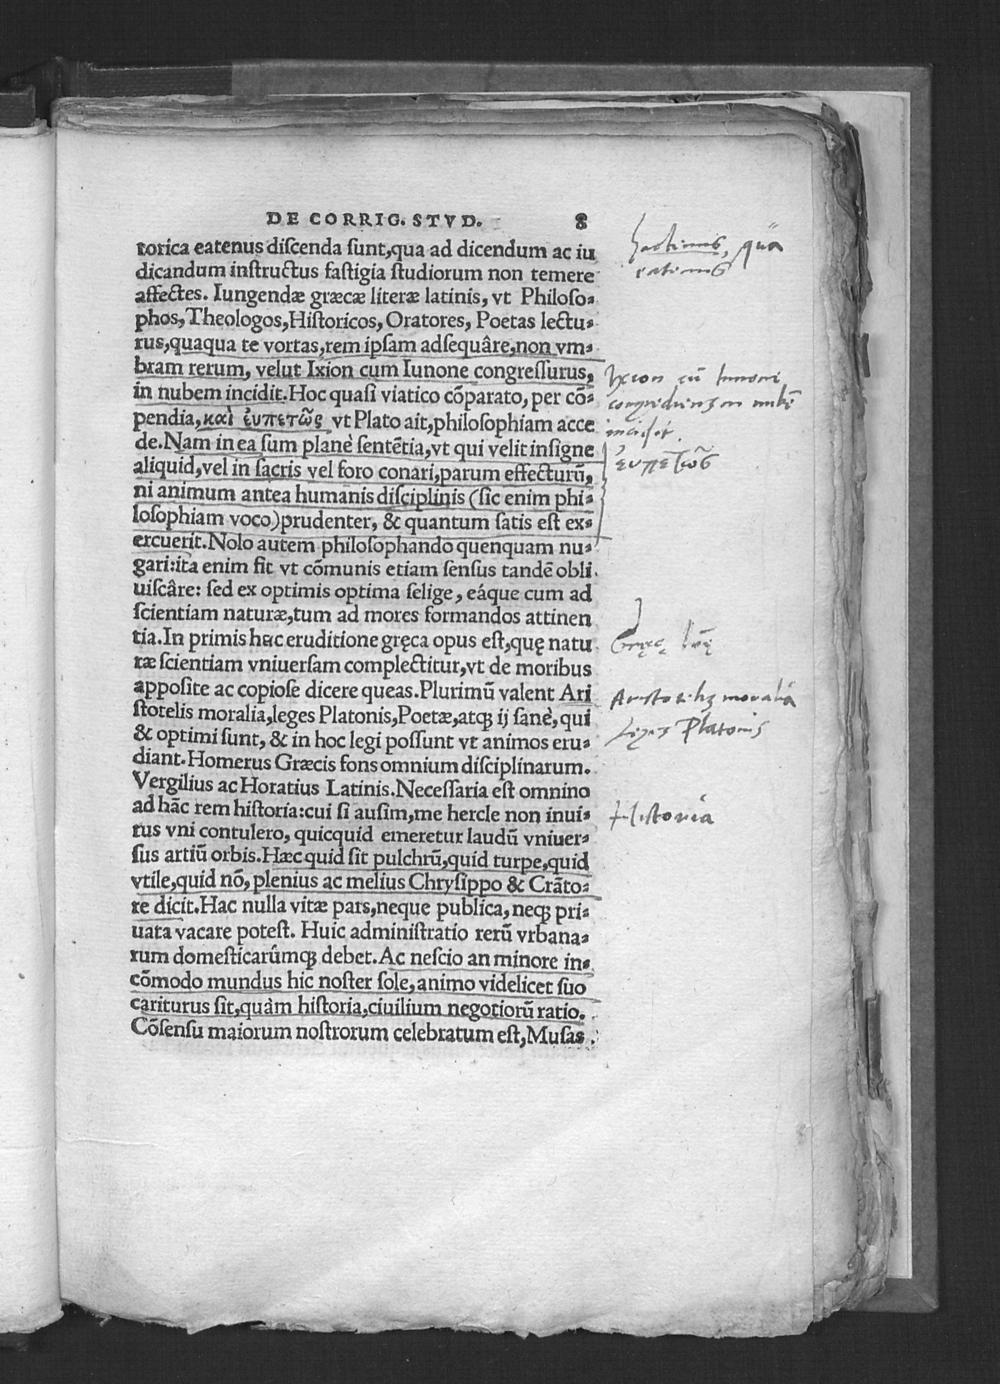 DE CORRIG. STVD. 8
torica eatenus discenda sunt, qua ad dicendum ac iu
dicandum instructus fastigia studiorum non temere
affectes. Iungendæ græcæ literæ latinis, vt Philoso-
phos, Theologos, Historicos, Oratores, Poetas lectu-
rus, quaqua te vortas, rem ipsam adsequâre, non vm-
bram rerum, velut Ixion cum Iunone congressurus,
in nubem incidit. Hoc quasi viatico cõparato, per cõ-
pendia, καὶ ἐυπετῶς vt Plato ait, philosophiam acce
de. Nam in ea sum planè sentẽtia, vt qui velit insigne
aliquid, vel in sacris vel foro conari, parum effecturũ,
ni animum antea humanis disciplinis (sic enim phi-
losophiam voco) prudenter, & quantum satis est ex-
ercuerit. Nolo autem philosophando quenquam nu-
gari: ita enim fit vt cõmunis etiam sensus tandẽ obli
uiscâre: sed ex optimis optima selige, eáque cum ad
scientiam naturæ, tum ad mores formandos attinen
tia. In primis hac eruditione gręca opus est, quę natu
ræ scientiam vniuersam complectitur, vt de moribus
apposite ac copiose dicere queas. Plurimũ valent Ari
stotelis moralia, leges Platonis, Poetæ, atq; ij sanè, qui
& optimi sunt, & in hoc legi possunt vt animos eru-
diant. Homerus Græcis fons omnium disciplinarum.
Vergilius ac Horatius Latinis. Necessaria est omnino
ad hãc rem historia: cui si ausim, me hercle non inui-
tus vni contulero, quicquid emeretur laudũ vniuer-
sus artiũ orbis. Hæc quid sit pulchrũ, quid turpe, quid
vtile, quid nõ, plenius ac melius Chrysippo & Crãto-
re dicit. Hac nulla vitæ pars, neque publica, neq; pri-
uata vacare potest. Huic administratio rerũ vrbana-
rum domesticarúmq; debet. Ac nescio an minore in-
cõmodo mundus hic noster sole, animo videlicet suo
cariturus sit, quàm historia, ciuilium negotiorũ ratio.
Cõsensu maiorum nostrorum celebratum est, Musas
hactenus, qua
eatenus
Ixion cũ Iunone
congrediens in nubẽ
incidit.
ἐυπετῶς
Aristotelis moralia
Leges Platonis
Historia